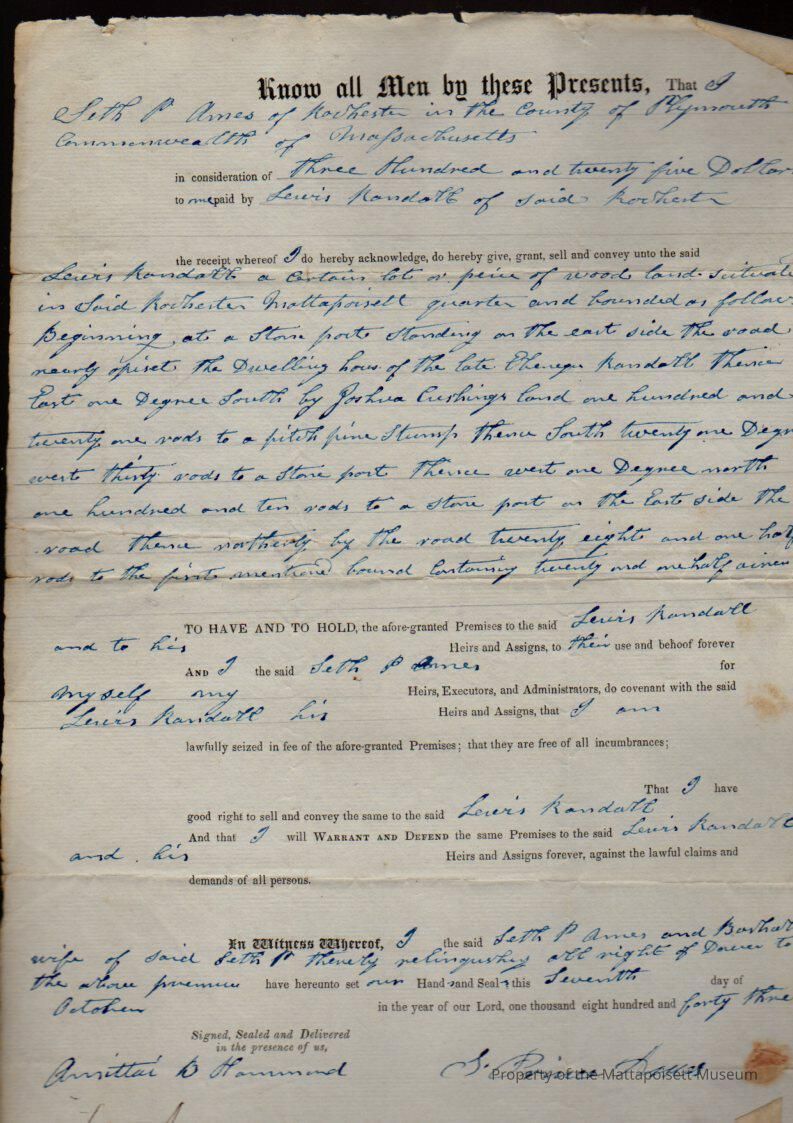 Know all Men by these Presents, That I
Seth P Ames of Rochester in the County of Plymouth
Commonwealth of Massachusetts
in consideration of three Hundred and twenty five Dollars
to me paid by Lewis Randall of said Rochester
the receipt whereof I do hereby acknowledge, do hereby give, grant, sell and convey unto the said
Lewis Randall a certain lot or peice of wood land situate
in Said Rochester Mattapoisett quarter and bounded as follow
Beginning at a Stone post Standing on the east side the road
nearly opiset the Dwelling hous of the late Ebenezer Randall thence
East one Degree South by Joshua Cushings land one hundred and
twenty one rods to a pitch pine Stump thence South twenty one Degr
west thirty rods to a Stone post thence west one Degree north
one hundred and ten rods to a stone post on the East side the
road thence northerly by the road twenty eight and one half
rods to the first mentioned bound Containing twenty and one half acres
TO HAVE AND TO HOLD, the afore-granted Premises to the said Lewis Randall
and to his Heirs and Assigns, to their use and behoof forever
AND I the said Seth P Ames for
myself my Heirs, Executors, and Administrators, do covenant with the said
Lewis Randall his Heirs and Assigns, that I am
lawfully seized in fee of the afore-granted Premises; that they are free of all incumbrances;
That I have
good right to sell and convey the same to the said Lewis Randall
And that I will WARRANT AND DEFEND the same Premises to the said Lewis Randall
and his Heirs and Assigns forever, against the lawful claims and
demands of all persons.
In Witness Whereof, I the said Seth P Ames and
wife of said Seth P thereby relinquishing all right of Dower to
the above premises have hereunto set our Hands and Seals this Seventh day of
October in the year of our Lord, one thousand eight hundred and forty three
Signed, Sealed and Delivered
in the presence of us,
Amittai B Hammond S. Pierce Ames
Property of the Mattapoisett Museum